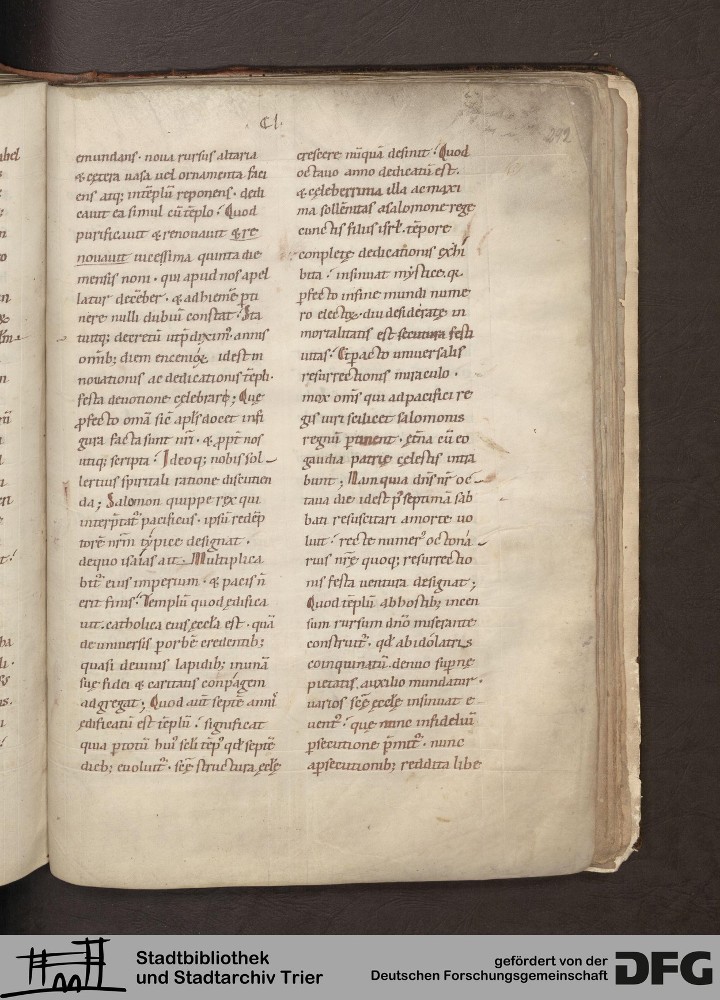 Cl.
292
emundans. noua rursus altaria
& cętera uasa uel ornamenta faci
ens atq; in tēplū reponens. dedi
cauit ea simul cū tēplo. Quod
purificauit & renouauit & re
nouauit uicessima quinta die
mensis noni. qui apud nos apel
latur decēber. & ad hiemē pti
nere nulli dubiū constat. Sta
tutq; decretū ut p̄diximꝰ. annis
omīb; diem encenioꝝ. id est in
nouationis ac dedicationis tēpli.
festa deuotione cęlebrari; Quę
pfecto omā sic apl̄s docet in fi
gura facta sunt nr̄i. & ppt̄ nos
utiq; scripta. Ideoq; nobis sol
lertius spiritali ratione discutien
da; Salomon quippe rex qui
interp̄tat᷑ pacificus. ipsū redēp
torē nr̄m typice designat.
de quo isaias ait. Multiplica
bit᷑ eius imperium. & pacis n̄
erit finis. Templū quod ędifica
uit. catholica eius eccl̄a est. quā
de uniuersis p orbē credentib;
quasi de uiuis lapidib; in unā
suę fidei & caritatis conpagem
adgregat; Quod aut̄ septē annis
ędificatū est tēplū. significat
quia p totū huiꝰ sc̄li tēpꝰ qd̄ septē
dieb; euoluit᷑. sc̄ę structura ęcl̄ę
crescere nūquā desinit. Quod
octauo anno dedicatū est.
& cęleberrima illa ac maxi
ma sollēnitas a salomone rege
cunctis filiis isrl̄. tēpore
conplętę dedicationis exhi
bita. insinuat mystice. qꝛ
pfecto in fine mundi nume
ro electoꝝ. diu desideratę in
mortalitatis est secutura festi
uitas. Et pacto uniuersalis
resurrectionis miraculo.
mox omīs qui ad pacifici re
gis uiri scilicet salomonis
regnū ptinent. et̄na cū eo
gaudia patrię cęlestis intra
bunt; Nam quia dn̄s nr̄ oc
taua die id est p̄ septimā sab
bati resuscitari a morte uo
luit. recte numerꝰ octona
rius nr̄ę quoq; resurrectio
nis festa uentura designat;
Quod tēplū ab hostib; incen
sum rursum dn̄o miserante
construit᷑. qd̄ ab idolatris
coinquinatū. denuo supnę
pietatis auxilio mundatur.
uarios sc̄ę ęccl̄ę insinuat e
uent᷑. quę nunc infideliū
psecutione p̄mit᷑. nunc
a psecutionib; reddita libe
Stadtbibliothek
und Stadtarchiv Trier
gefördert von der
Deutschen Forschungsgemeinschaft
DFG